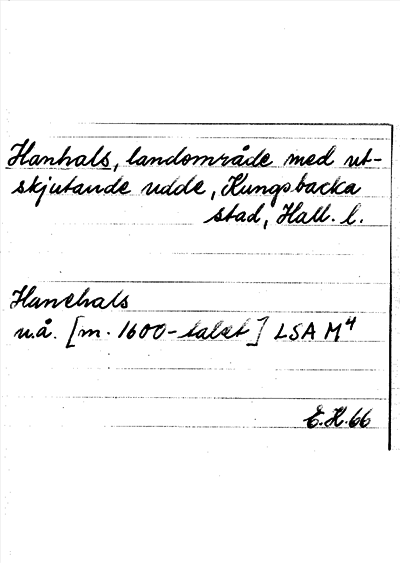 Hanhals, landområde med ut-
skjutande udde, Kungsbacka
stad, Hall. l.
Hanehals
u.å. [m. 1600-talet] LSA M⁴
E.H. 66